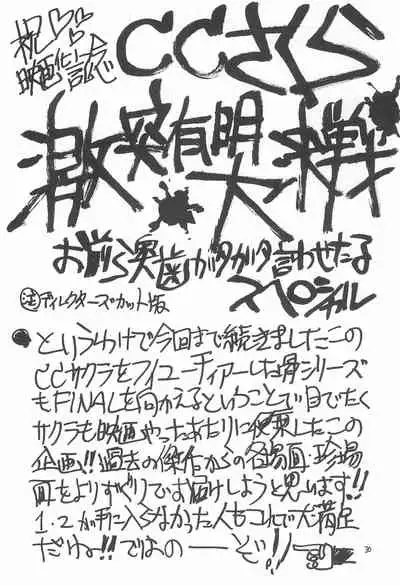 祝♡♡
映画化した記念で
CCさくら
激突有明
大決戦
お前ら奥歯ガタガタ言わせたる
スペシャル
注 ディレクターズカット版
●というわけで今回まで続きましたこの
CCサクラをフィーチャーした シリーズ
もFINALを向かえるということで目でたく
サクラも映画やったあたりに便乗したこの
企画!!過去の傑作からの名場面・珍場
面をよりすぐりでお届けしようと思います!!
1・2が手に入らなかった人もこれで大満足
だけね!!ではの――ぞ!!
30